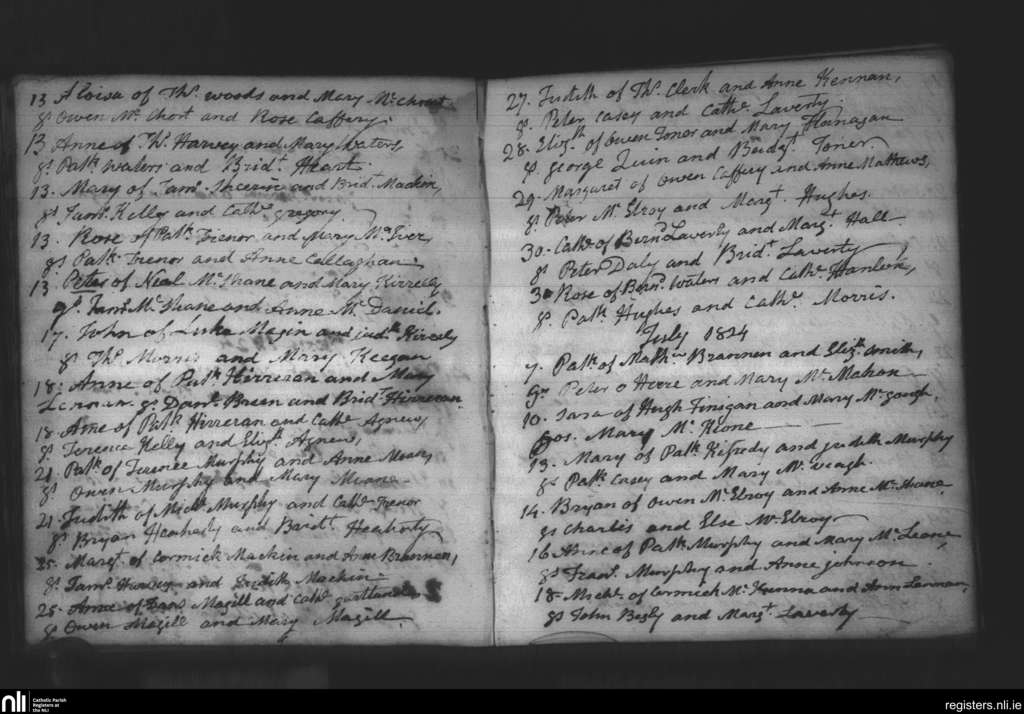 13 Aloisa of Thos. woods and Mary Mc
gs Owen Mc Chort and Rose Caffery.
13 Anne of Thos. Harvey and Mary Waters,
gs. Patk. Waters and Bridt. Heart
13. Mary of Jams. and Bridt. Mackin,
gs. Jams. Kelly and Cathe. gregory.
13. Rose of Patk. Trenor and Mary Mc Iver,
gs. Patk. Trenor and Anne Callaghan.
13. Peter of Neal Mc Shane and Mary Kirrelly
gs. Jams. Mc Shane and Anne Mc Daniel.
17. John of Luke Magin and judth
gs Thos. Morris and Mary Keegan
18. Anne of Patk. Hirreran and Mary
Lennan gs. Danl. Breen and Brid. Hirreran.
18 Ame of Patk. Hirreran and Cathe. Agnew,
gs. Terence Kelly and Elizth. Agnew,
21. Patk. of Terence Murphy and Anne
gs. Owen Murphy and Mary
21. Judith of Michl. Murphy and Cathe. Trenor
gs. Bryan Heaherty and Bridt. Heaherty
25. Margt. of Cormick Mackin and Ann Brannan,
gs. Jams. and Judith Mackin
25. Anne of Magill and Cathe.
gs Owen Magill and Mary Magill.
27. Judith of Thos. Clerk and Anne Kennan,
gs. Peter Casey and Cathe. Laverty.
28. Elizth. of Owen Tonor and Mary Flanagan
gs. George Quin and Bridgt. Toner.
29. Margaret of Owen Caffery and Anne Mathews,
gs. Peter Mc Elroy and Margt. Hughes.
30. Cathe. of Bernd. Laverty and Margt. Hall
gs Peter Daly and Bridt. Laverty
30 Rose of Bern. Waters and Cathe. Hanlon,
gs. Patk. Hughes and Cathe. Morris.
July 1824
7. Patk. of Mathw. Brannen and Elizth. Smith,
gs. Peter o Hare and Mary Mc Mahon
10. Sara of Hugh Finigan and Mary Mc gough,
gos. Mary Mc Kone
13. Mary of Patk. and judith Murphy
gs Patk. Casey and Mary Mc Veagh.
14. Bryan of Owen Mc Elroy and Anne Mc Shane,
gs Charles and Else Mc Elroy
16 Anne of Patk. Murphy and Mary Mc Leone,
gs Frans. Murphy and Anne johnson
18. Michl. of Cormick Mc Kenna and Ann Lennan,
gs John Begly and Margt. Laverty
nli
Catholic Parish
Registers at
the NLI
registers.nli.ie